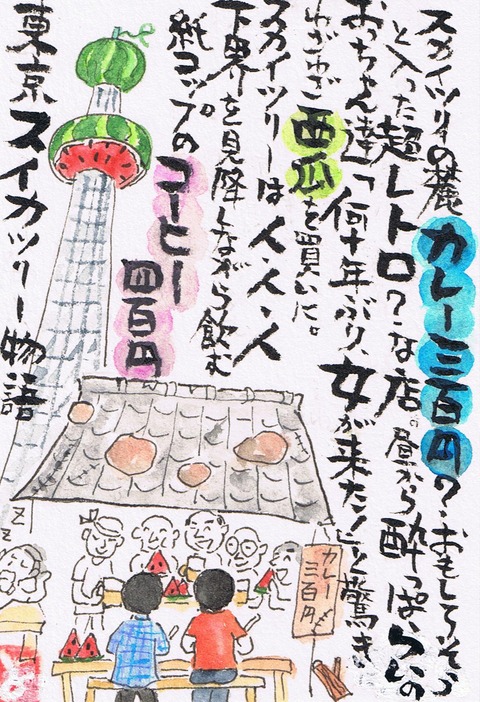 スカイツリーの麓カレー三百円?おもしろそう
と入った超レトロ?な店。昼から酔っぱらいの
おっちゃん達「何十年ぶり、女が来た!」と驚き
わざわざ西瓜を買いに。
スカイツリーは人・人・人
下界を見降しながら飲む
紙コップのコーヒー
四百円
東京スイカツリー物語
カレー
三百円
z z